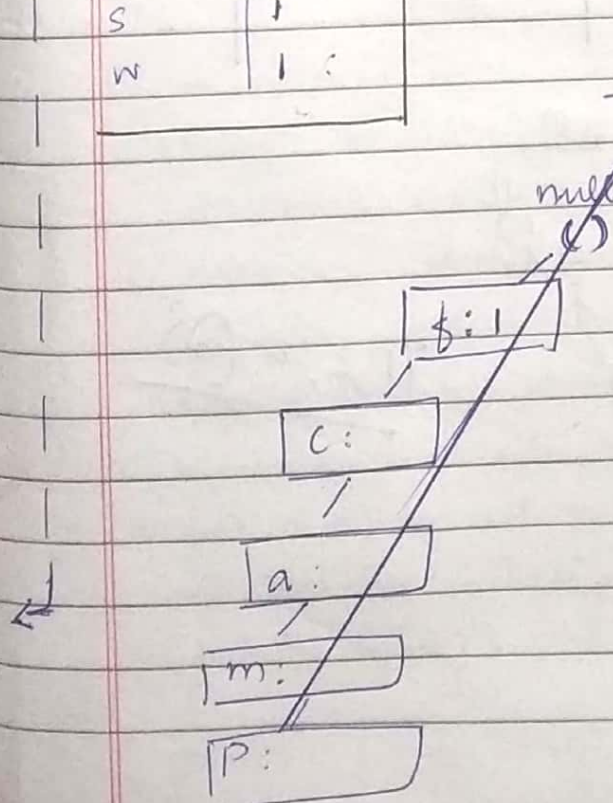 S 1
W 1 :
null
( )
f : 1
C :
a :
m :
P :